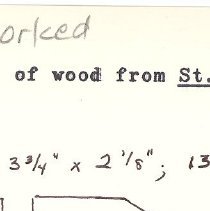 orked
of wood from St.
3 3/4" x 2 1/8"; 13